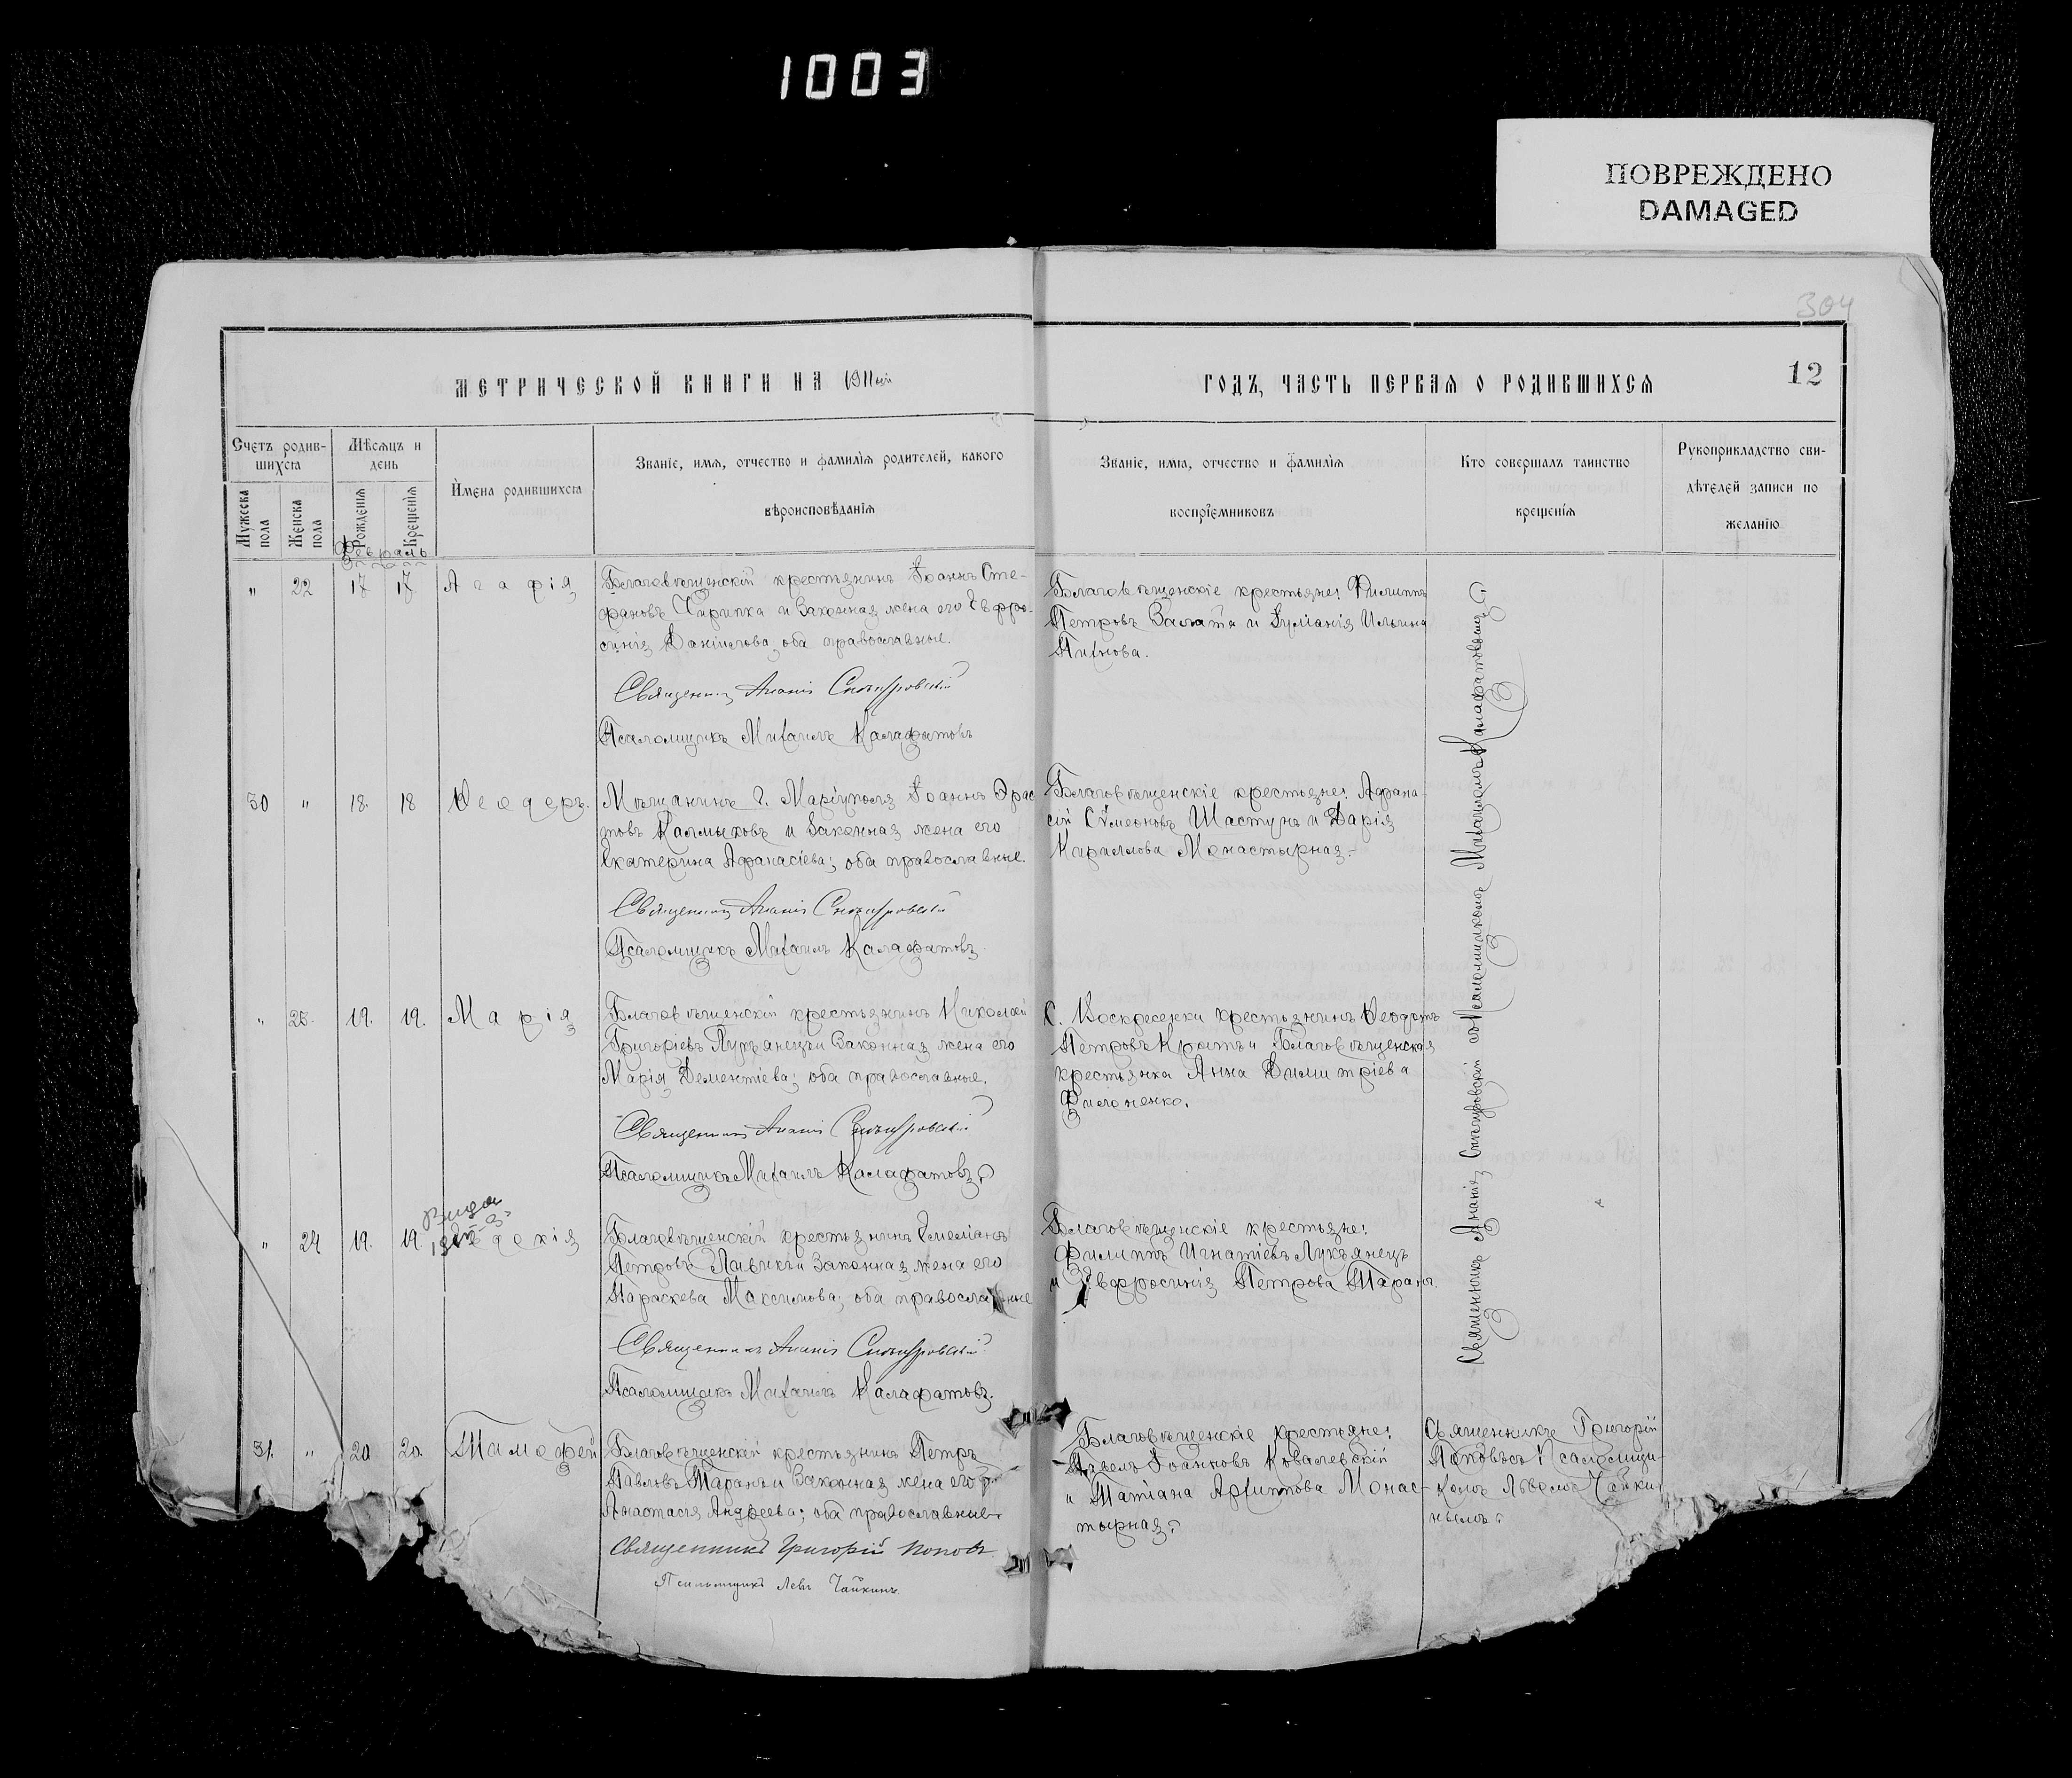 1003
ПОВРЕЖДЕНО
DAMAGED
304
12
МЕТРИЧЕСКОЙ КНИГИ НА 1911 ый
ГОДЪ, ЧАСТЬ ПЕРВАЯ О РОДИВШИХСЯ
Счетъ родив-
шихся
Мужеска пола
Женска пола
Мѣсяцъ и
день
Рожденія
Крещенія
Имена родившихся
Званіе, имя, отчество и фамилія родителей, какого
вѣроисповѣданія
Званіе, имя, отчество и фамилія
воспріемниковъ
Кто совершалъ таинство
крещенія
Рукоприкладство сви-
дѣтелей записи по
желанію
Февраль
" 22 17 17 Агафія
Благовѣщенскій крестьянинъ Іоаннъ Сте-
фановъ Чирипка и законная жена его Евфро-
синія Даніилова, оба православные.
Священникъ Ананія Снѣгуровскій
Псаломщикъ Михаилъ Калафатовъ
Благовѣщенскіе крестьяне: Филиппъ
Петровъ Залата и Іуліанія Ильина
Пихнова.
30 " 18. 18 Ѳеодоръ.
Мѣщанинъ г. Маріуполя Іоаннъ Эрас
товъ Калмыковъ и законная жена его
Екатерина Афанасіева; оба православные.
Священникъ Ананія Снѣгуровскій
Псаломщикъ Михаилъ Калафатовъ
Благовѣщенскіе крестьяне: Афана-
сій Сѵмеоновъ Шастунъ и Дарія
Кириллова Монастырная.
" 23. 19. 19. Марія
Благовѣщенскій крестьянинъ Николай
Григоріевъ Лукьянецъ и законная жена его
Марія Дементіева; оба православные.
Священникъ Ананія Снѣгуровскій
Псаломщикъ Михаилъ Калафатовъ
С. Воскресенки крестьянинъ Ѳеодотъ
Петровъ Кротъ и Благовѣщенская
крестьянка Анна Димитріева
Филоненко.
" 24 19. 19. Евдокія
Благовѣщенскій крестьянинъ Емеліанъ
Петровъ Лавикъ и законная жена его
Параскева Максимова; оба православные
Священникъ Ананія Снѣгуровскій
Псаломщикъ Михаилъ Калафатовъ.
Благовѣщенскіе крестьяне:
Филиппъ Игнатіевъ Лукьянецъ
и Евфросинія Петрова Таранъ.
Священникъ Ананія Снѣгуровскій съ Псаломщикомъ Михаиломъ Калафатовымъ
31. " 20 20. Тимофей
Благовѣщенскій крестьянинъ Петръ
Павловъ Таранъ и законная жена его
Анастасія Андреева; оба православные.
Священникъ Григорій Поповъ
Псаломщикъ Левъ Чайкинъ
Благовѣщенскіе крестьяне:
Павелъ Іоанновъ Ковалевскій
и Татіана Архиппова Монас-
тырная.
Священникъ Григорій
Поповъ съ Псаломщи-
комъ Львомъ Чайки-
нымъ.